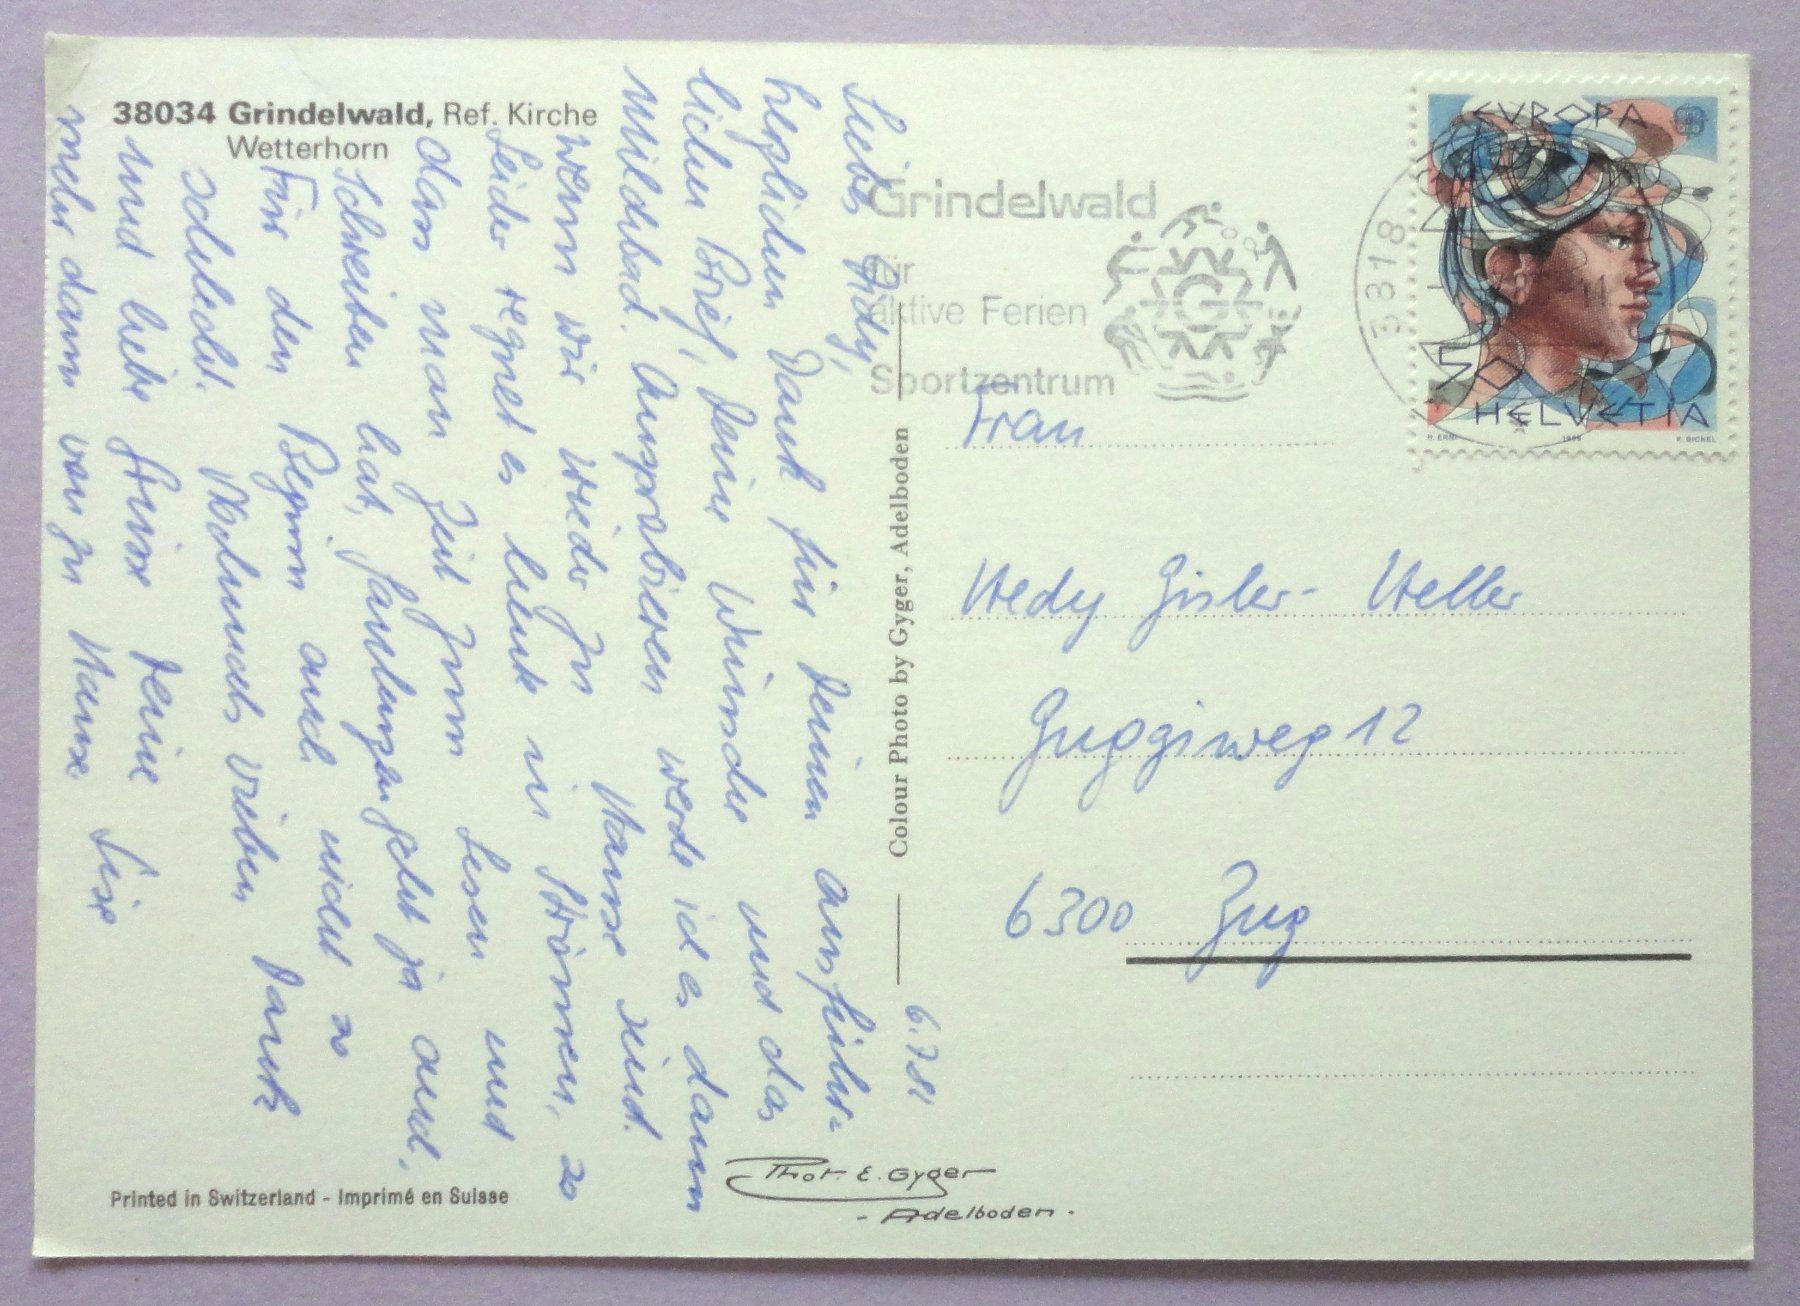 38034 Grindelwald, Ref. Kirche
Wetterhorn
Liebe Hedy,
herzlichen Dank für Deinen ausführ=
lichen Brief, Deine Wünsche und das
Milchbad. Ausprobieren werde ich es dann
wenn wir wieder zu Hause sind.
Leider regnet es heute in Strömen, so
dass man Zeit zum Lesen und
Schreiben hat, faulenzen geht ja auch.
Für den Beginn auch nicht so
schlecht. Nochmals vielen Dank
und liebe Grüsse Deine
mehr dann von zu Hause Lise
Printed in Switzerland - Imprimé en Suisse
Colour Photo by Gyger, Adelboden
Phot. E. Gyger
- Adelboden -
Grindelwald
für
aktive Ferien
Sportzentrum
G
3818
EVROPA
50
HELVETIA
H. ERNI 1986 K. BICKEL
Frau
Hedy Gisler-Heller
Guggiweg 12
6300 Zug